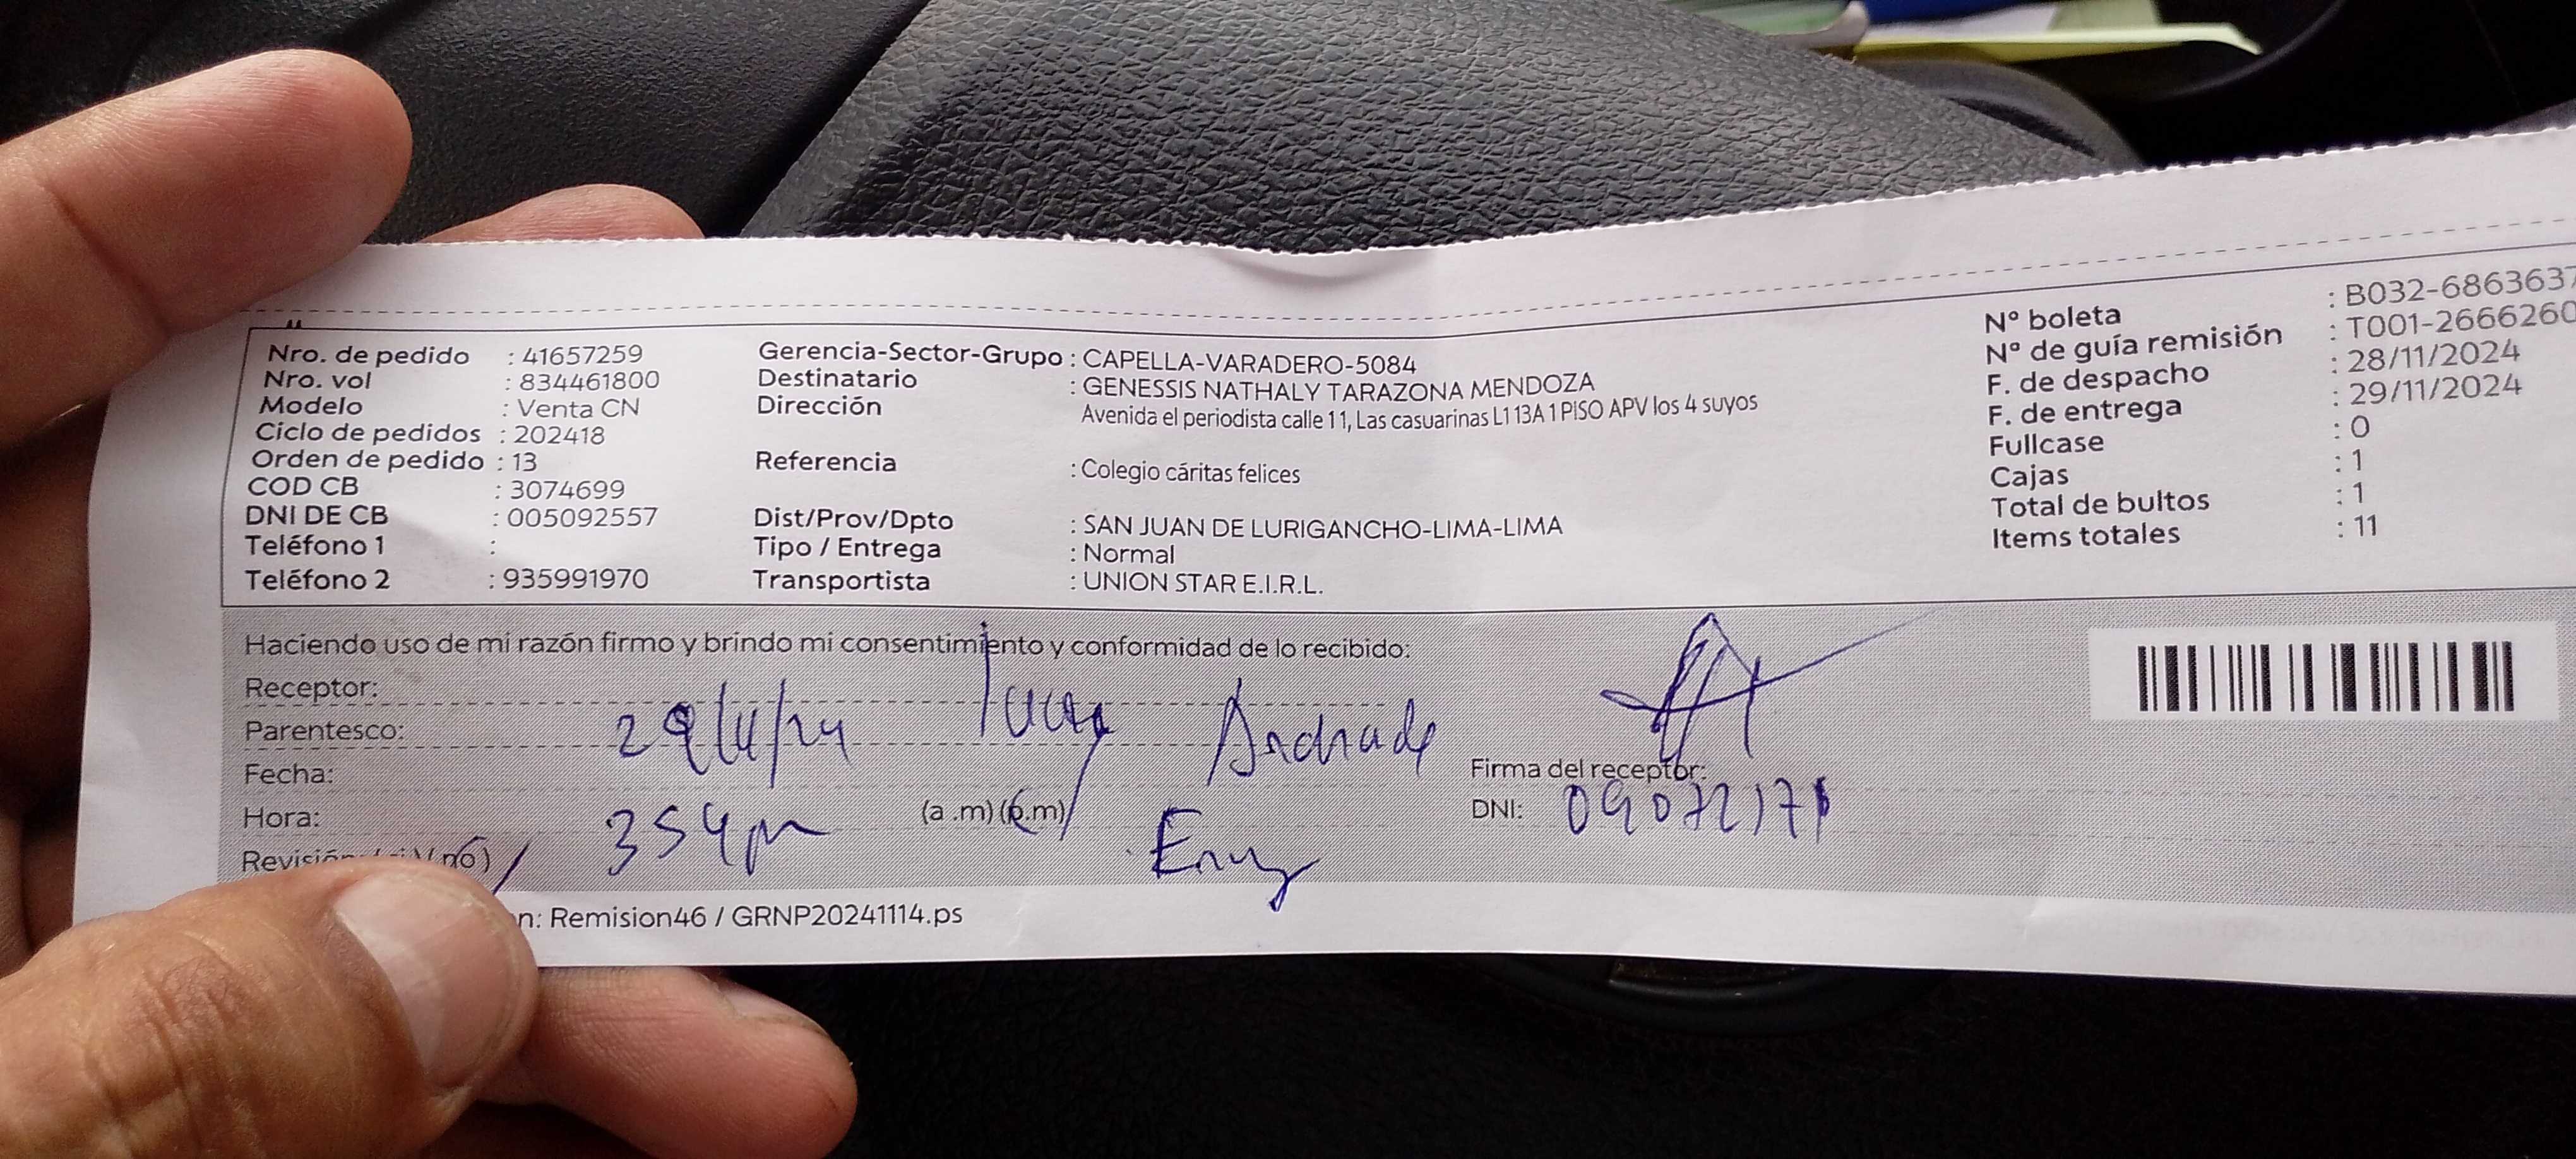 Nro. de pedido : 41657259
Nro. vol : 834461800
Modelo : Venta CN
Ciclo de pedidos : 202418
Orden de pedido : 13
COD CB : 3074699
DNI DE CB : 005092557
Teléfono 1 :
Teléfono 2 : 935991970
Gerencia-Sector-Grupo : CAPELLA-VARADERO-5084
Destinatario : GENESSIS NATHALY TARAZONA MENDOZA
Dirección Avenida el periodista calle 11, Las casuarinas L1 13A 1 PISO APV los 4 suyos
Referencia : Colegio cáritas felices
Dist/Prov/Dpto : SAN JUAN DE LURIGANCHO-LIMA-LIMA
Tipo / Entrega : Normal
Transportista : UNION STAR E.I.R.L.
N° boleta : B032-6863637
N° de guía remisión : T001-2666260
F. de despacho : 28/11/2024
F. de entrega : 29/11/2024
Fullcase : 0
Cajas : 1
Total de bultos : 1
Items totales : 11
Haciendo uso de mi razón firmo y brindo mi consentimiento y conformidad de lo recibido:
Receptor:
Parentesco: 29/11/24 Andrade
Fecha:
Hora: 354pm (a .m) (p.m)
Firma del receptor:
DNI:
Revisión no)
n: Remision46 / GRNP20241114.ps